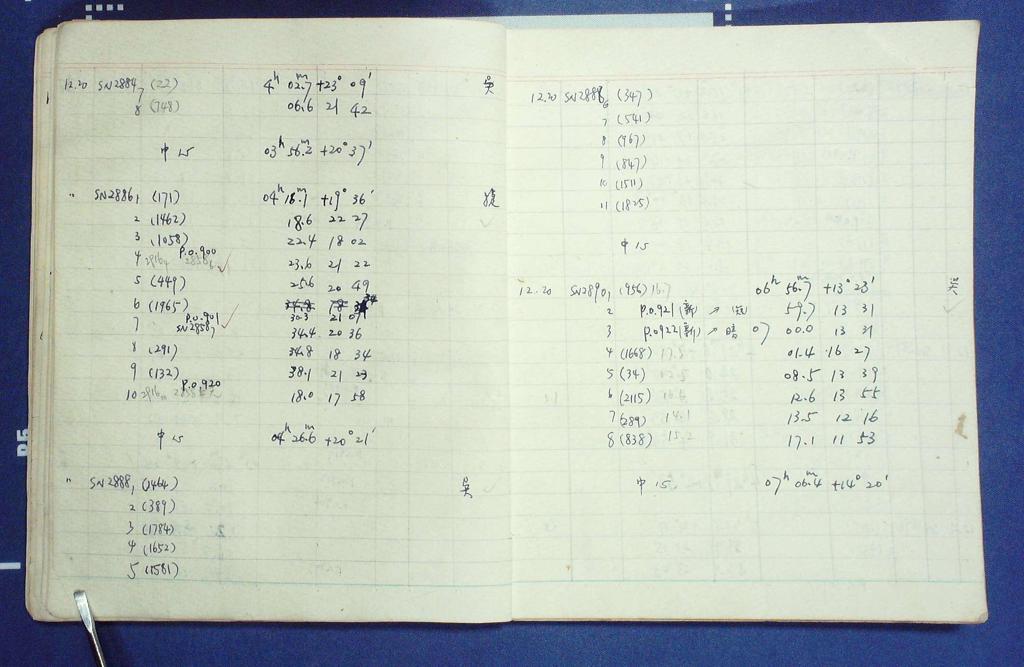 12.20 SN2884, 7 (22) 4ʰ 02.ᵐ7 +23° 09' 吴
8 (748) 06.6 21 42
中 15 03ʰ 56.ᵐ2 +20° 37'
" SN2886, 1 (171) 04ʰ 18.ᵐ7 +19° 36'
2 (1462) 18.6 22 27
3 (1058) 22.4 18 02
4 P.O.900 23.6 21 22
5 (449) 25.6 20 49
6 (1965) 30.3 21 07
7 P.O.901 SN2858, 34.4 20 36
8 (291) 34.8 18 34
9 (132) 38.1 21 23
10 P.O.920 18.0 17 58
中 15 04ʰ 26.ᵐ6 +20° 21'
" SN2888, 1 (1464) 吴
2 (389)
3 (1784)
4 (1652)
5 (1581)
12.20 SN2888, 6 (347)
7 (541)
8 (967)
9 (847)
10 (1511)
11 (1825)
中 15
12.20 SN2890, 1 (956) 16.7 06ʰ 56.ᵐ7 +13° 23'
2 P.O.921 (新) 59.7 13 31
3 P.O.922 (新) ↗ 暗 07 00.0 13 31
4 (1668) 17.5 01.4 16 27
5 (34) 08.5 13 39
6 (2115) 12.6 13 55
7 (289) 14.1 13.5 12 16
8 (838) 15.2 17.1 11 53
中 15 07ʰ 06.ᵐ4 +14° 20'